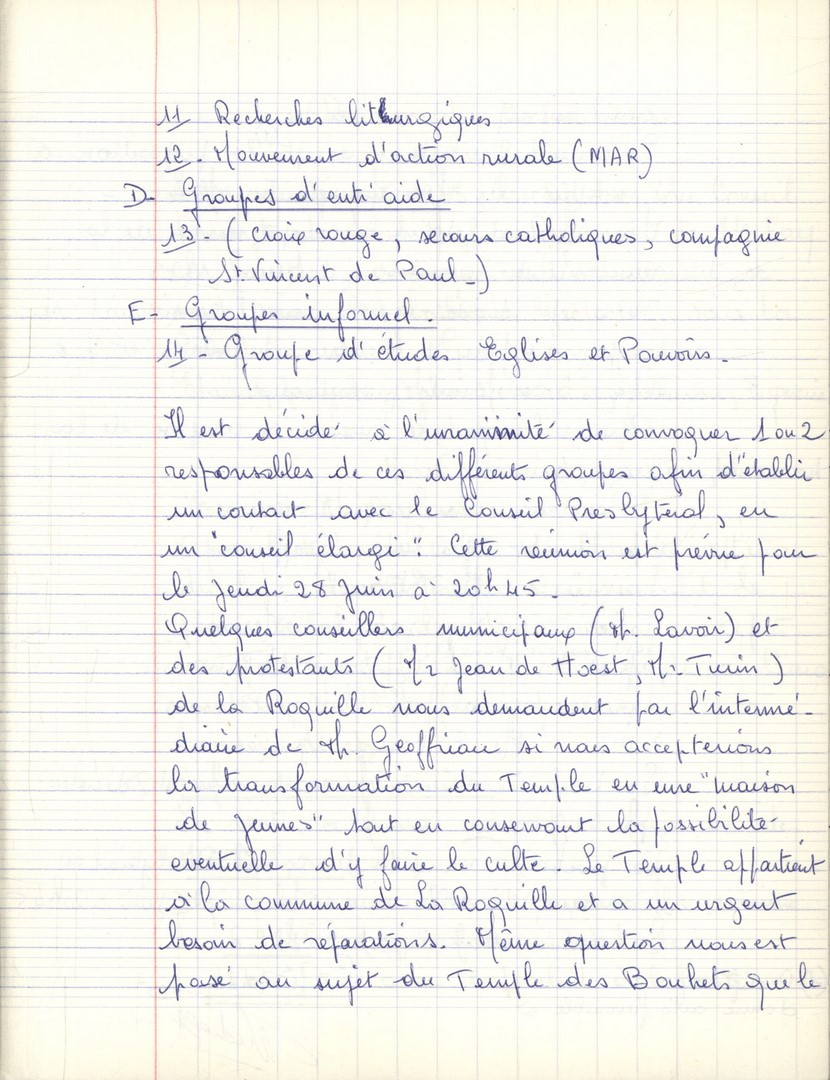 11 Recherches lithurgiques
12. Mouvement d'action rurale (MAR)
D- Groupes d'enti'aide
13 - (croix rouge, secours catholiques, compagnie
St. Vincent de Paul -)
E- Groupes informel.
14 - Groupe d'études Eglises et Pouvoirs.
Il est décidé à l'unanimité de convoquer 1 ou 2
responsables de ces différents groupes afin d'établir
un contact avec le Conseil Presbytéral, en
un "conseil élargi". Cette réunion est prévue pour
le Jeudi 28 Juin à 20h45.
Quelques conseillers municipaux (M. Lavoir) et
des protestants (Mr Jean de Hoest, Mr. Turin)
de la Roquille nous demandent par l'intermé-
diaire de M. Geoffriau si nous accepterions
la transformation du Temple en une "maison
de jeunes" tout en conservant la possibilité
eventuelle d'y faire le culte. Le Temple appartient
à la commune de La Roquille et a un urgent
besoin de réparations. Même question nous est
posé au sujet du Temple des Bouhets que le